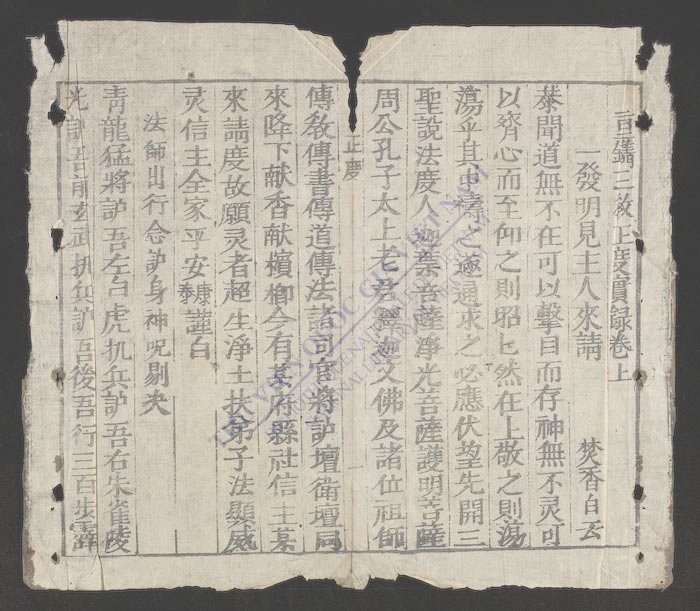 重鐫三教正度實録卷上
一發明見主人來請 焚香白云
恭聞道無不在可以擊目而存神無不灵可
以齊心而至仰之則昭〻然在上敬之則蕩
蕩乎其中禱之遂通求之必應伏望先開三
聖説法度人迦葉菩薩淨光菩薩護明菩薩
周公孔子太上老君釋迦文佛及諸位祖師
正度
傳教傳書傳道傳法諸司官將𧦈壇衛壇同
來降下献香献檳榔今有某府縣社信主某
來請度故願灵者超生淨土扶弟子法顯威
灵信主全家平安康泰謹白
法師出行念𧦈身神呪剔夬
青龍猛將𧦈吾左白虎扒兵𧦈吾右朱雀陵
光𧦈吾前玄武扒兵𧦈吾後吾行三百步霹
THƯ VIỆN QUỐC GIA VIỆT NAM
NATIONAL LIBRARY OF VIETNAM